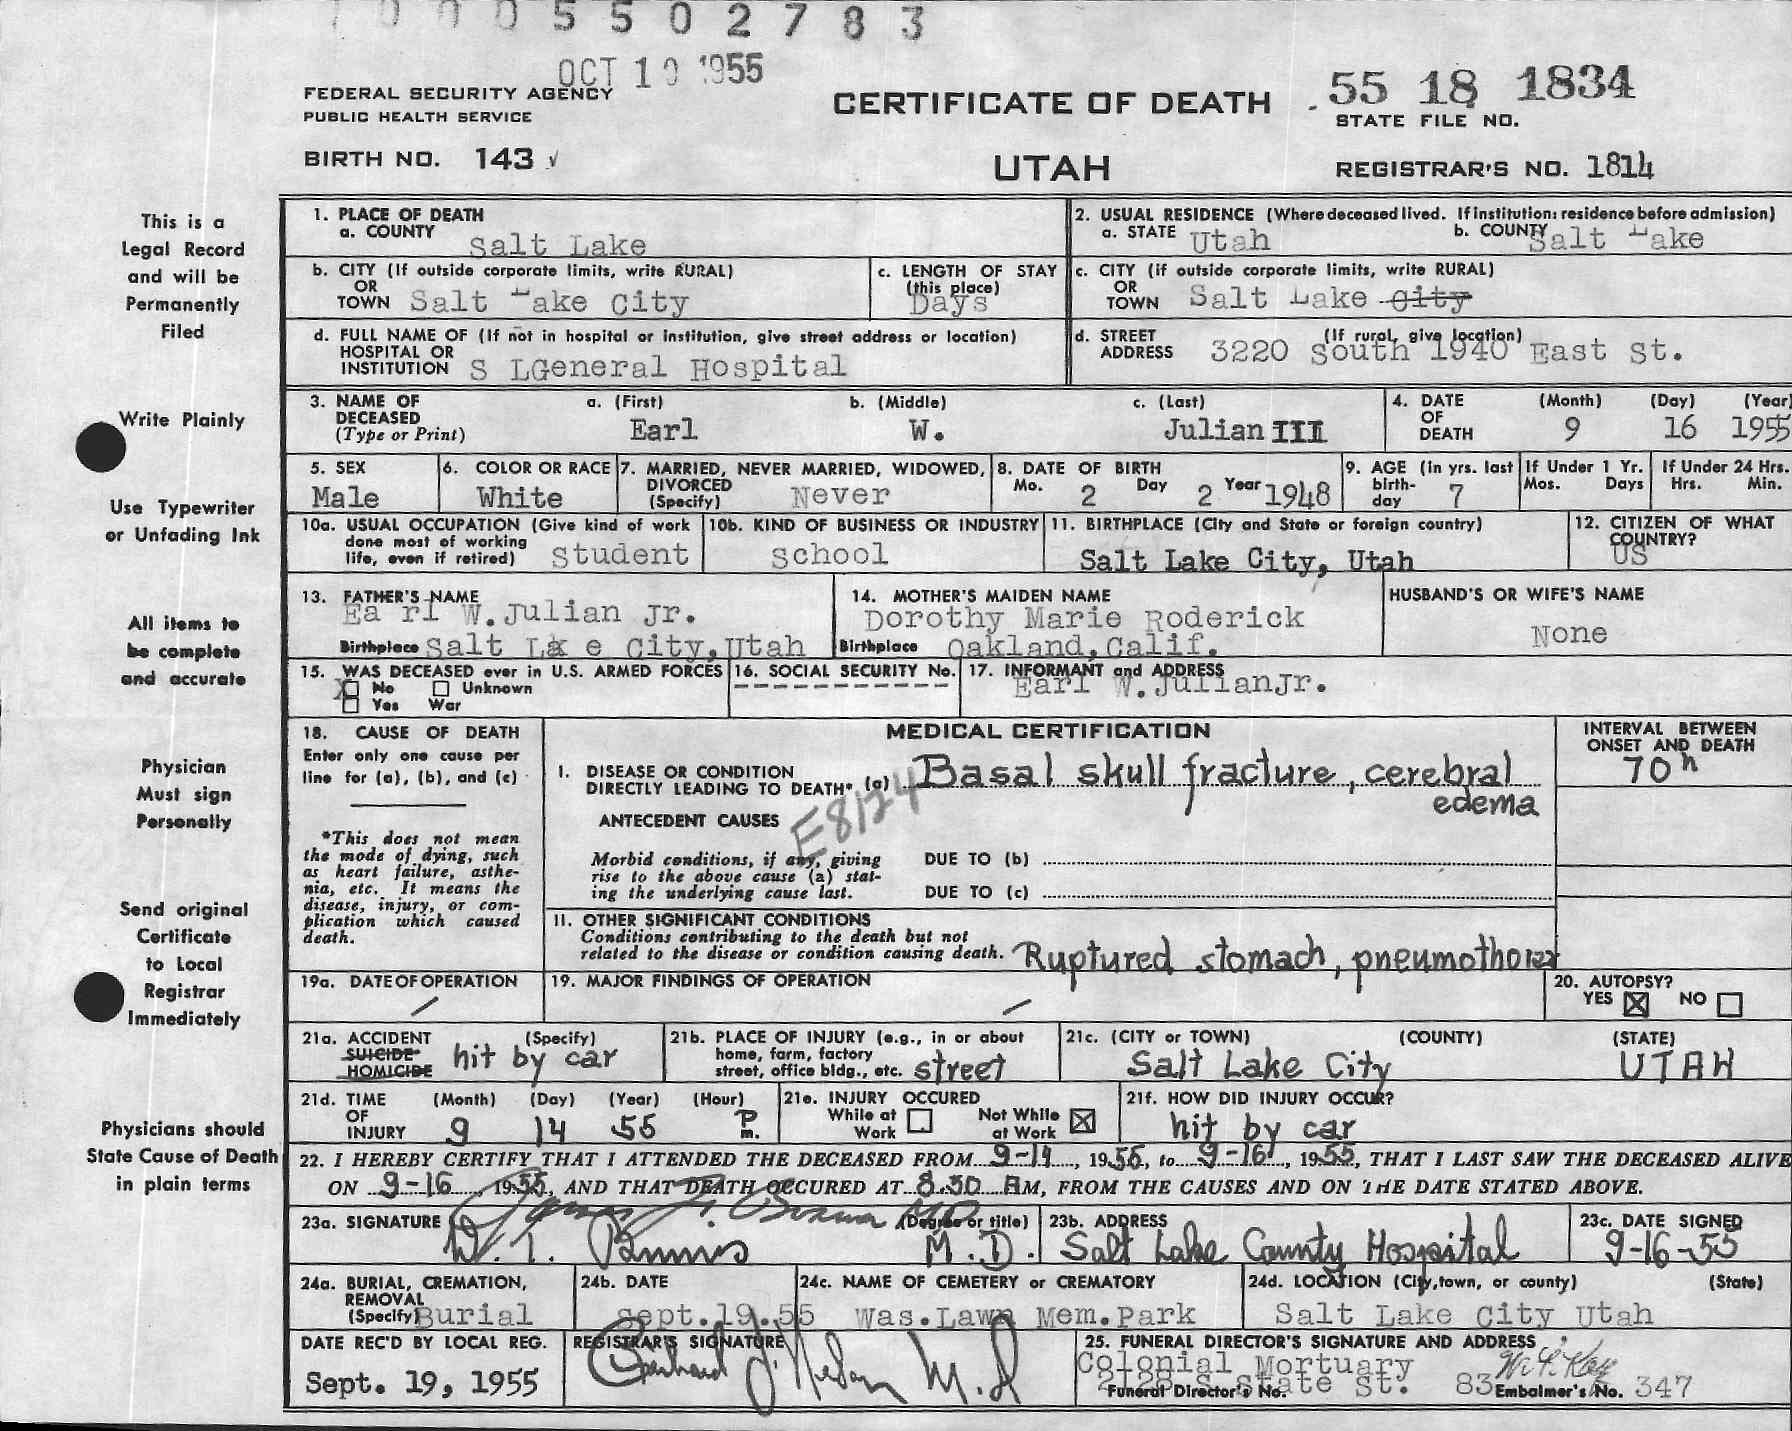 0005502783
OCT 10 1955
FEDERAL SECURITY AGENCY
PUBLIC HEALTH SERVICE
CERTIFICATE OF DEATH
55 18 1834
STATE FILE NO.
BIRTH NO. 143
UTAH
REGISTRAR'S NO. 1814
This is a
Legal Record
and will be
Permanently
Filed
Write Plainly
Use Typewriter
or Unfading Ink
All items to
be complete
and accurate
Physician
Must sign
Personally
Send original
Certificate
to Local
Registrar
Immediately
Physicians should
State Cause of Death
in plain terms
1. PLACE OF DEATH
a. COUNTY Salt Lake
2. USUAL RESIDENCE (Where deceased lived. If institution: residence before admission)
a. STATE Utah b. COUNTY Salt Lake
b. CITY (If outside corporate limits, write RURAL)
OR
TOWN Salt Lake City
c. LENGTH OF STAY
(this place)
Days
c. CITY (if outside corporate limits, write RURAL)
OR
TOWN Salt Lake City
d. FULL NAME OF (If not in hospital or institution, give street address or location)
HOSPITAL OR
INSTITUTION S LGeneral Hospital
d. STREET (If rural, give location)
ADDRESS 3220 South 1940 East St.
3. NAME OF DECEASED
(Type or Print)
a. (First) Earl
b. (Middle) W.
c. (Last) Julian III
4. DATE OF DEATH
(Month) (Day) (Year)
9 16 1955
5. SEX
Male
6. COLOR OR RACE
White
7. MARRIED, NEVER MARRIED, WIDOWED,
DIVORCED
(Specify) Never
8. DATE OF BIRTH
Mo. 2 Day 2 Year 1948
9. AGE (in yrs. last
birth-
day 7
If Under 1 Yr.
Mos. Days
If Under 24 Hrs.
Hrs. Min.
10a. USUAL OCCUPATION (Give kind of work
done most of working
life, even if retired) Student
10b. KIND OF BUSINESS OR INDUSTRY
School
11. BIRTHPLACE (City and State or foreign country)
Salt Lake City, Utah
12. CITIZEN OF WHAT
COUNTRY?
US
13. FATHER'S NAME
Ea rl W.Julian Jr.
Birthplace Salt Lake City,Utah
14. MOTHER'S MAIDEN NAME
Dorothy Marie Roderick
Birthplace Oakland,Calif.
HUSBAND'S OR WIFE'S NAME
None
15. WAS DECEASED ever in U.S. ARMED FORCES
X No Unknown
Yes War
16. SOCIAL SECURITY No.
-----------
17. INFORMANT and ADDRESS
Earl W.JulianJr.
18. CAUSE OF DEATH
Enter only one cause per
line for (a), (b), and (c)
*This does not mean
the mode of dying, such
as heart failure, asthe-
nia, etc. It means the
disease, injury, or com-
plication which caused
death.
MEDICAL CERTIFICATION
INTERVAL BETWEEN
ONSET AND DEATH
70h
I. DISEASE OR CONDITION
DIRECTLY LEADING TO DEATH* (a) Basal skull fracture, cerebral
edema
E8124
ANTECEDENT CAUSES
Morbid conditions, if any, giving
rise to the above cause (a) stat-
ing the underlying cause last.
DUE TO (b)
DUE TO (c)
II. OTHER SIGNIFICANT CONDITIONS
Conditions contributing to the death but not
related to the disease or condition causing death. Ruptured stomach, pneumothorax
19a. DATE OF OPERATION
/
19. MAJOR FINDINGS OF OPERATION
/
20. AUTOPSY?
YES X NO
21a. ACCIDENT (Specify)
SUICIDE
HOMICIDE
hit by car
21b. PLACE OF INJURY (e.g., in or about
home, farm, factory
street, office bldg., etc. street
21c. (CITY or TOWN) (COUNTY) (STATE)
Salt Lake City UTAH
21d. TIME OF INJURY
(Month) (Day) (Year) (Hour)
9 14 55 P m.
21e. INJURY OCCURED
While at Work
Not While at Work X
21f. HOW DID INJURY OCCUR?
hit by car
22. I HEREBY CERTIFY THAT I ATTENDED THE DECEASED FROM 9-14, 1955, to 9-16, 1955, THAT I LAST SAW THE DECEASED ALIVE
ON 9-16, 1955, AND THAT DEATH OCCURED AT 8:30 AM, FROM THE CAUSES AND ON THE DATE STATED ABOVE.
23a. SIGNATURE (Degree or title)
M.D.
23b. ADDRESS
Salt Lake County Hospital
23c. DATE SIGNED
9-16-55
24a. BURIAL, CREMATION,
REMOVAL
(Specify) Burial
24b. DATE
Sept.19.55
24c. NAME OF CEMETERY or CREMATORY
Was.Lawn Mem.Park
24d. LOCATION (City, town, or county) (State)
Salt Lake City Utah
DATE REC'D BY LOCAL REG.
Sept. 19, 1955
REGISTRAR'S SIGNATURE
25. FUNERAL DIRECTOR'S SIGNATURE AND ADDRESS
Colonial Mortuary
State St.
Funeral Director's No. 83 Embalmer's No. 347